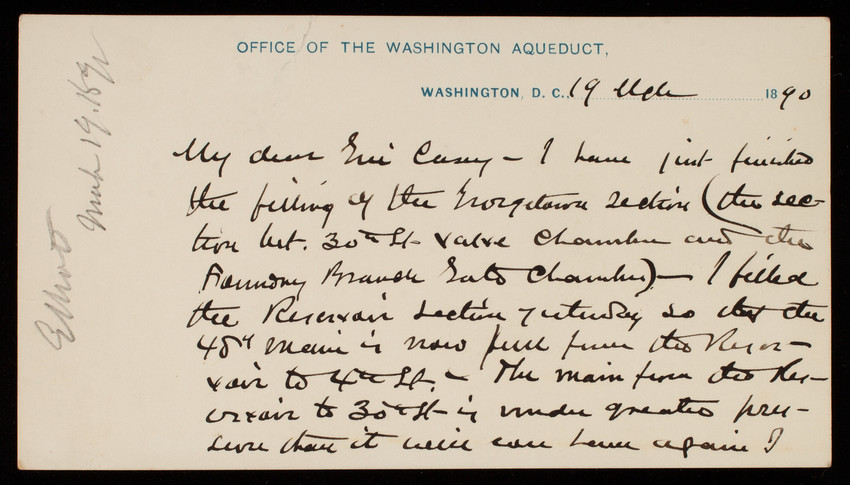 OFFICE OF THE WASHINGTON AQUEDUCT,
WASHINGTON, D. C., 19 Mch 1890
My dear Genl Casey – I have just finished
the filling of the Georgetown section (the sec-
tion bet. 30th St. valve chamber and the
Foundry Branch Gate Chamber) – I filled
the Reservoir section yesterday so that the
48" main is now full from the Reser-
voir to 4th St. – The main from the Res-
ervoir to 30th St. is under greater pres-
sure than it will ever have again I
Elliott
March 19. 1890